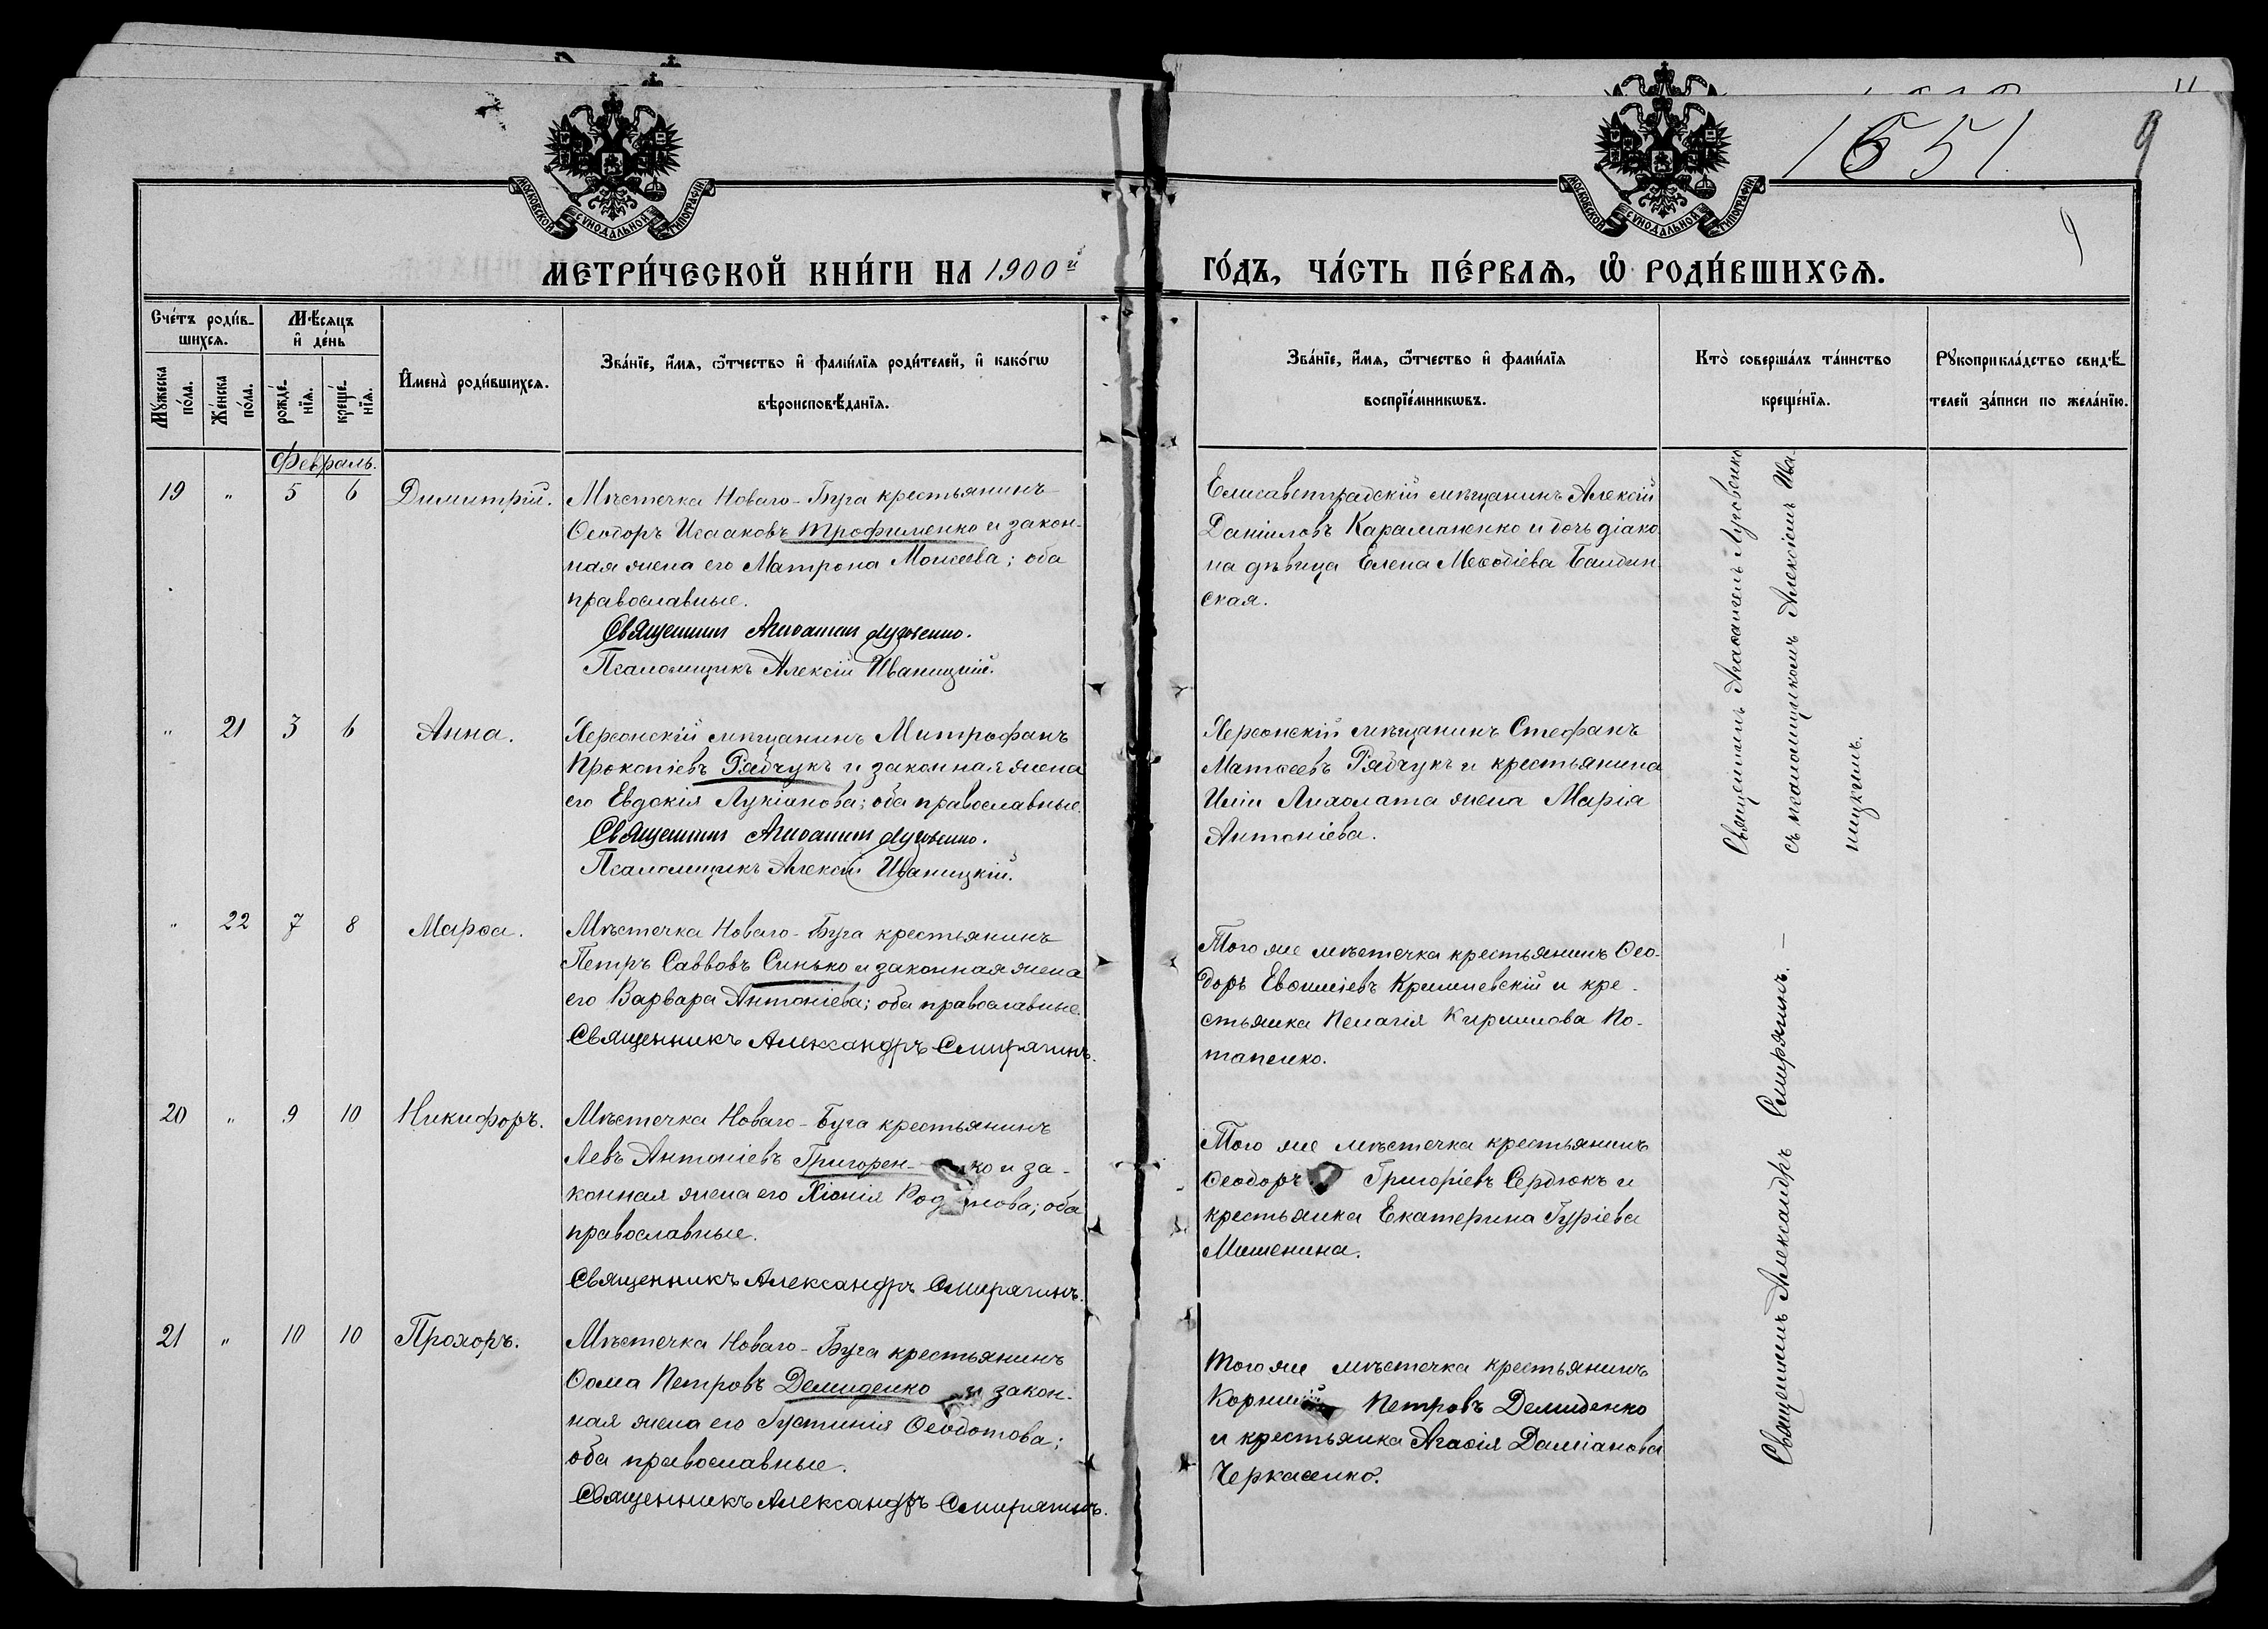 1651
9
9
МОСКОВСКОЙ СѴНОДАЛЬНОЙ ТИПОГРАФІИ
МОСКОВСКОЙ СѴНОДАЛЬНОЙ ТИПОГРАФІИ
МЕТРИ́ЧЕСКОЙ КНИ́ГИ НА 1900й
ГО́ДЪ, ЧА́СТЬ ПЕ́РВАѦ, Ѽ РОДИ́ВШИХСѦ.
Сче́тъ роди́в-
шихсѧ.
Мѣ́сѧцъ
и҆ де́нь
Мꙋ́жеска
по́ла.
Же́нска
по́ла.
рожде́-
нїѧ.
креще́-
нїѧ.
И҆мена̀ роди́вшихсѧ.
Зва́нїе, и҆́мѧ, ѻ҆́тчество и҆ фами́лїѧ роди́телей, и҆ како́гѡ
вѣроисповѣ́данїѧ.
Зва́нїе, и҆́мѧ, ѻ҆́тчество и҆ фами́лїѧ
воспрїе́мникѡвъ.
Кто̀ соверша́лъ та́инство
креще́нїѧ.
Рꙋкоприкла́дство свидѣ́-
телей за́писи по жела́нїю.
Февраль.
19 " 5 6 Димитрій.
Мѣстечка Новаго-Буга крестьянинъ
Ѳеодоръ Исааковъ Трофименко и закон-
ная жена его Матрона Моисеева; оба
православные.
Псаломщикъ Алексій Иваницкій.
Елисаветградскій мѣщанинъ Алексій
Даніиловъ Караманенко и дочь діако-
на дѣвица Елена Меѳодіева Балдин
ская.
Священникъ Луговенко
съ псаломщикомъ Алексіемъ Ива-
ницкимъ.
" 21 3 6 Анна.
Херсонскій мѣщанинъ Митрофанъ
Прокопіевъ Рябчукъ и законная жена
его Евдокія Лукіанова; оба православные.
Псаломщикъ Алексій Иваницкій.
Херсонскій мѣщанинъ Стефанъ
Матѳеевъ Рябчукъ и крестьянина
Иліи Лихолата жена Марія
Антоніева.
" 22 7 8 Марѳа.
Мѣстечка Новаго-Буга крестьянинъ
Петръ Савовъ Синько и законная жена
его Варвара Антоніева; оба православные.
Священникъ Александръ Смирягинъ.
Того же мѣстечка крестьянинъ Ѳео-
доръ Евѳиміевъ и кре-
стьянка Пелагія Кириллова По-
тапенко.
Священникъ Александръ Смирягинъ. —
20 " 9 10 Никифоръ.
Мѣстечка Новаго-Буга крестьянинъ
Левъ Антоніевъ Григорен-ко и за-
конная жена его Хіонія нова; оба
православные.
Священникъ Александръ Смирягинъ.
Того же мѣстечка крестьянинъ
Ѳеодоръ Григоріевъ Сердюкъ и
крестьянка Екатерина Гуріева
Мишенина.
21 " 10 10 Прохоръ.
Мѣстечка Новаго-Буга крестьянинъ
Ѳома Петровъ Демиденко и закон-
ная жена его Іустинія Ѳеодотова;
оба православные.
Священникъ Александръ Смирягинъ.
Того же мѣстечка крестьянинъ
Корнилій Петровъ Демиденко
и крестьянка Агаѳія Даміанова
Черкасенко.